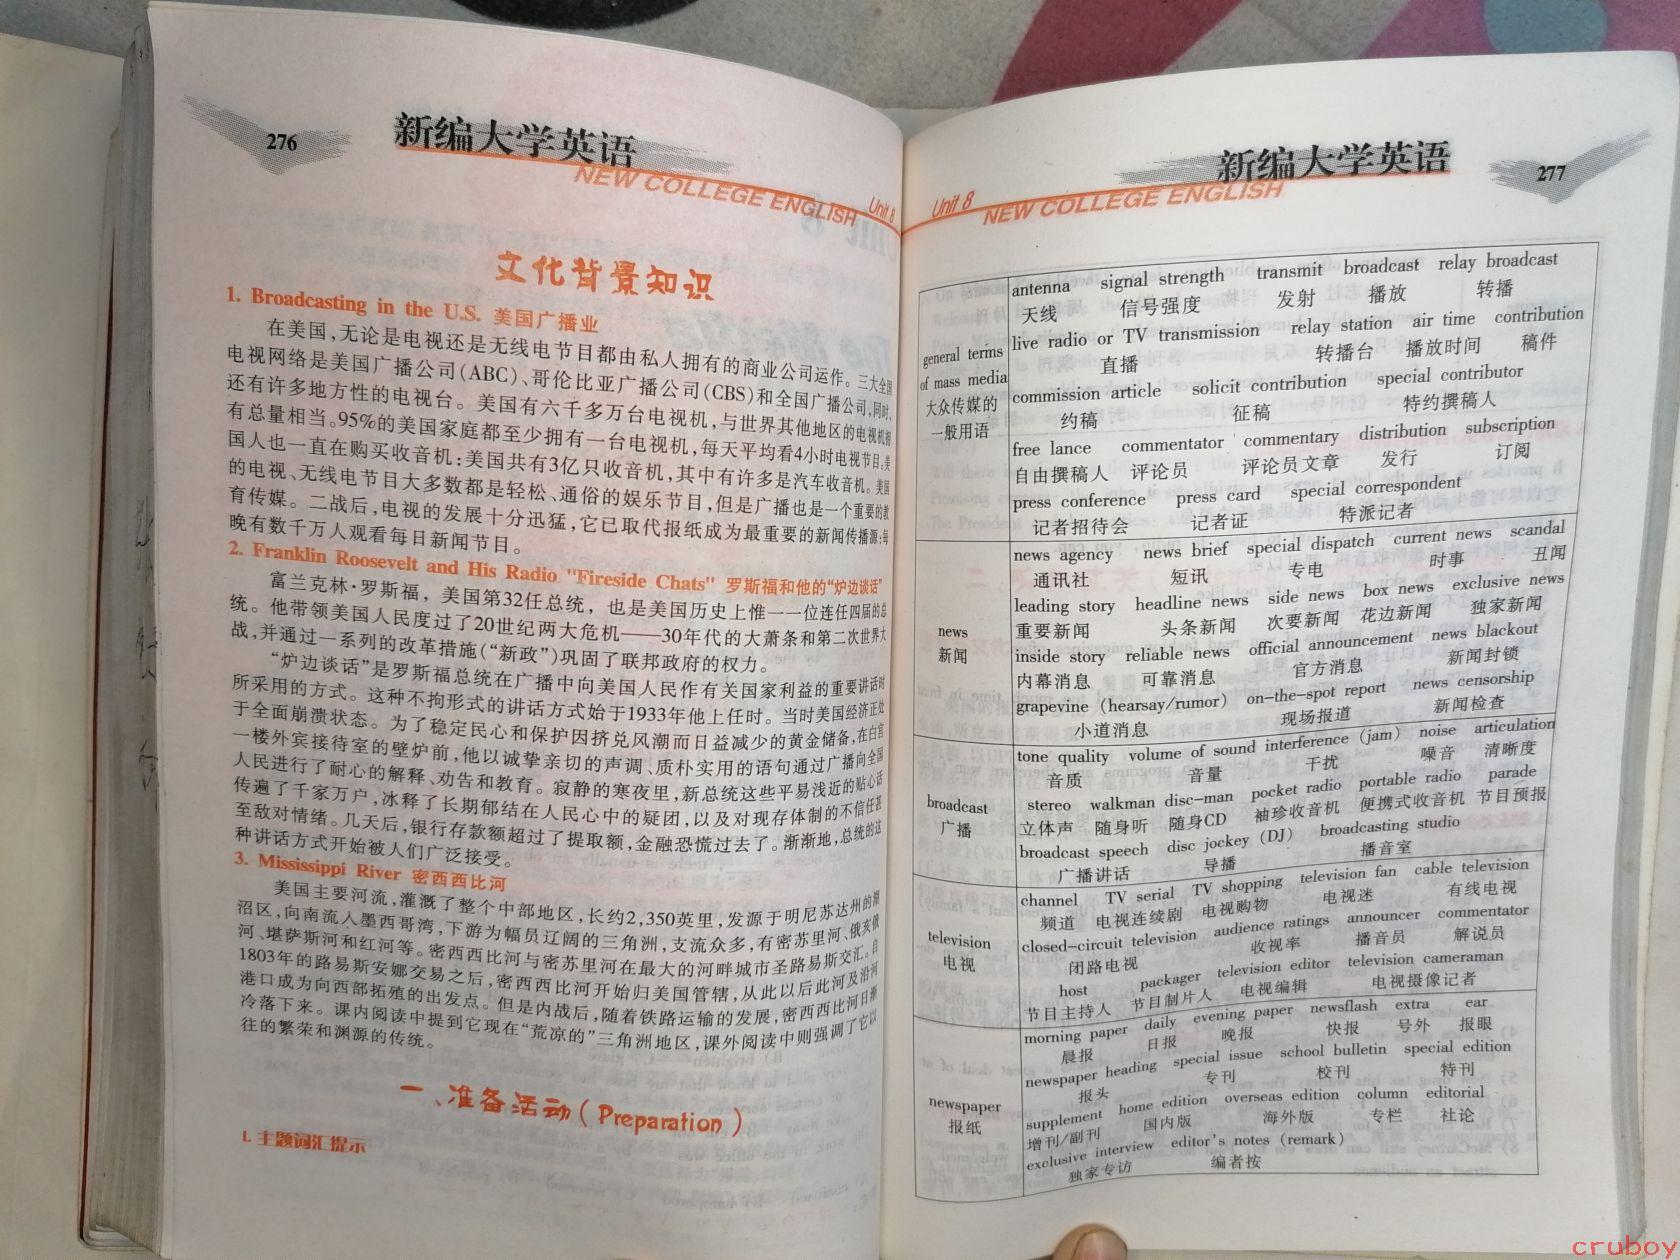 276
新编大学英语
NEW COLLEGE ENGLISH
Unit 8
文化背景知识
1. Broadcasting in the U.S. 美国广播业
在美国,无论是电视还是无线电节目都由私人拥有的商业公司运作。三大全国
电视网络是美国广播公司(ABC)、哥伦比亚广播公司(CBS)和全国广播公司,同时,
还有许多地方性的电视台。美国有六千多万台电视机,与世界其他地区的电视机拥
有总量相当。95%的美国家庭都至少拥有一台电视机,每天平均看4小时电视节目。美
国人也一直在购买收音机:美国共有3亿只收音机,其中有许多是汽车收音机。美国
的电视、无线电节目大多数都是轻松、通俗的娱乐节目,但是广播也是一个重要的教
育传媒。二战后,电视的发展十分迅猛,它已取代报纸成为最重要的新闻传播源:每
晚有数千万人观看每日新闻节目。
2. Franklin Roosevelt and His Radio "Fireside Chats" 罗斯福和他的“炉边谈话”
富兰克林·罗斯福，美国第32任总统，也是美国历史上惟一一位连任四届的总
统。他带领美国人民度过了20世纪两大危机——30年代的大萧条和第二次世界大
战,并通过一系列的改革措施(“新政”)巩固了联邦政府的权力。
“炉边谈话”是罗斯福总统在广播中向美国人民作有关国家利益的重要讲话时
所采用的方式。这种不拘形式的讲话方式始于1933年他上任时。当时美国经济正处
于全面崩溃状态。为了稳定民心和保护因挤兑风潮而日益减少的黄金储备,在白宫
一楼外宾接待室的壁炉前,他以诚挚亲切的声调、质朴实用的语句通过广播向全国
人民进行了耐心的解释、劝告和教育。寂静的寒夜里,新总统这些平易浅近的贴心话
传遍了千家万户,冰释了长期郁结在人民心中的疑团,以及对现存体制的不信任甚
至敌对情绪。几天后,银行存款额超过了提取额,金融恐慌过去了。渐渐地,总统的这
种讲话方式开始被人们广泛接受。
3. Mississippi River 密西西比河
美国主要河流,灌溉了整个中部地区,长约2,350英里,发源于明尼苏达州的湖
沼区,向南流入墨西哥湾,下游为幅员辽阔的三角洲,支流众多,有密苏里河、俄亥俄
河、堪萨斯河和红河等。密西西比河与密苏里河在最大的河畔城市圣路易斯交汇。自
1803年的路易斯安娜交易之后,密西西比河开始归美国管辖,从此以后此河及沿河
港口成为向西部拓殖的出发点。但是内战后,随着铁路运输的发展,密西西比河日渐
冷落下来。课内阅读中提到它现在“荒凉的”三角洲地区,课外阅读中则强调了它以
往的繁荣和渊源的传统。
一、准备活动(Preparation)
1. 主题词汇提示
新编大学英语
277
Unit 8
NEW COLLEGE ENGLISH
general terms
of mass media
大众传媒的
一般用语
antenna signal strength transmit broadcast relay broadcast
天线 信号强度 发射 播放 转播
live radio or TV transmission relay station air time contribution
直播 转播台 播放时间 稿件
commission article solicit contribution special contributor
约稿 征稿 特约撰稿人
free lance commentator commentary distribution subscription
自由撰稿人 评论员 评论员文章 发行 订阅
press conference press card special correspondent
记者招待会 记者证 特派记者
news
新闻
news agency news brief special dispatch current news scandal
通讯社 短讯 专电 时事 丑闻
leading story headline news side news box news exclusive news
重要新闻 头条新闻 次要新闻 花边新闻 独家新闻
inside story reliable news official announcement news blackout
内幕消息 可靠消息 官方消息 新闻封锁
grapevine (hearsay/rumor) on-the-spot report news censorship
小道消息 现场报道 新闻检查
broadcast
广播
tone quality volume of sound interference (jam) noise articulation
音质 音量 干扰 噪音 清晰度
stereo walkman disc-man pocket radio portable radio parade
立体声 随身听 随身CD 袖珍收音机 便携式收音机 节目预报
broadcast speech disc jockey (DJ) broadcasting studio
广播讲话 导播 播音室
television
电视
channel TV serial TV shopping television fan cable television
频道 电视连续剧 电视购物 电视迷 有线电视
closed-circuit television audience ratings announcer commentator
闭路电视 收视率 播音员 解说员
host packager television editor television cameraman
节目主持人 节目制片人 电视编辑 电视摄像记者
newspaper
报纸
morning paper daily evening paper newsflash extra ear
晨报 日报 晚报 快报 号外 报眼
newspaper heading special issue school bulletin special edition
报头 专刊 校刊 特刊
supplement home edition overseas edition column editorial
增刊/副刊 国内版 海外版 专栏 社论
exclusive interview editor's notes (remark)
独家专访 编者按
cruboy